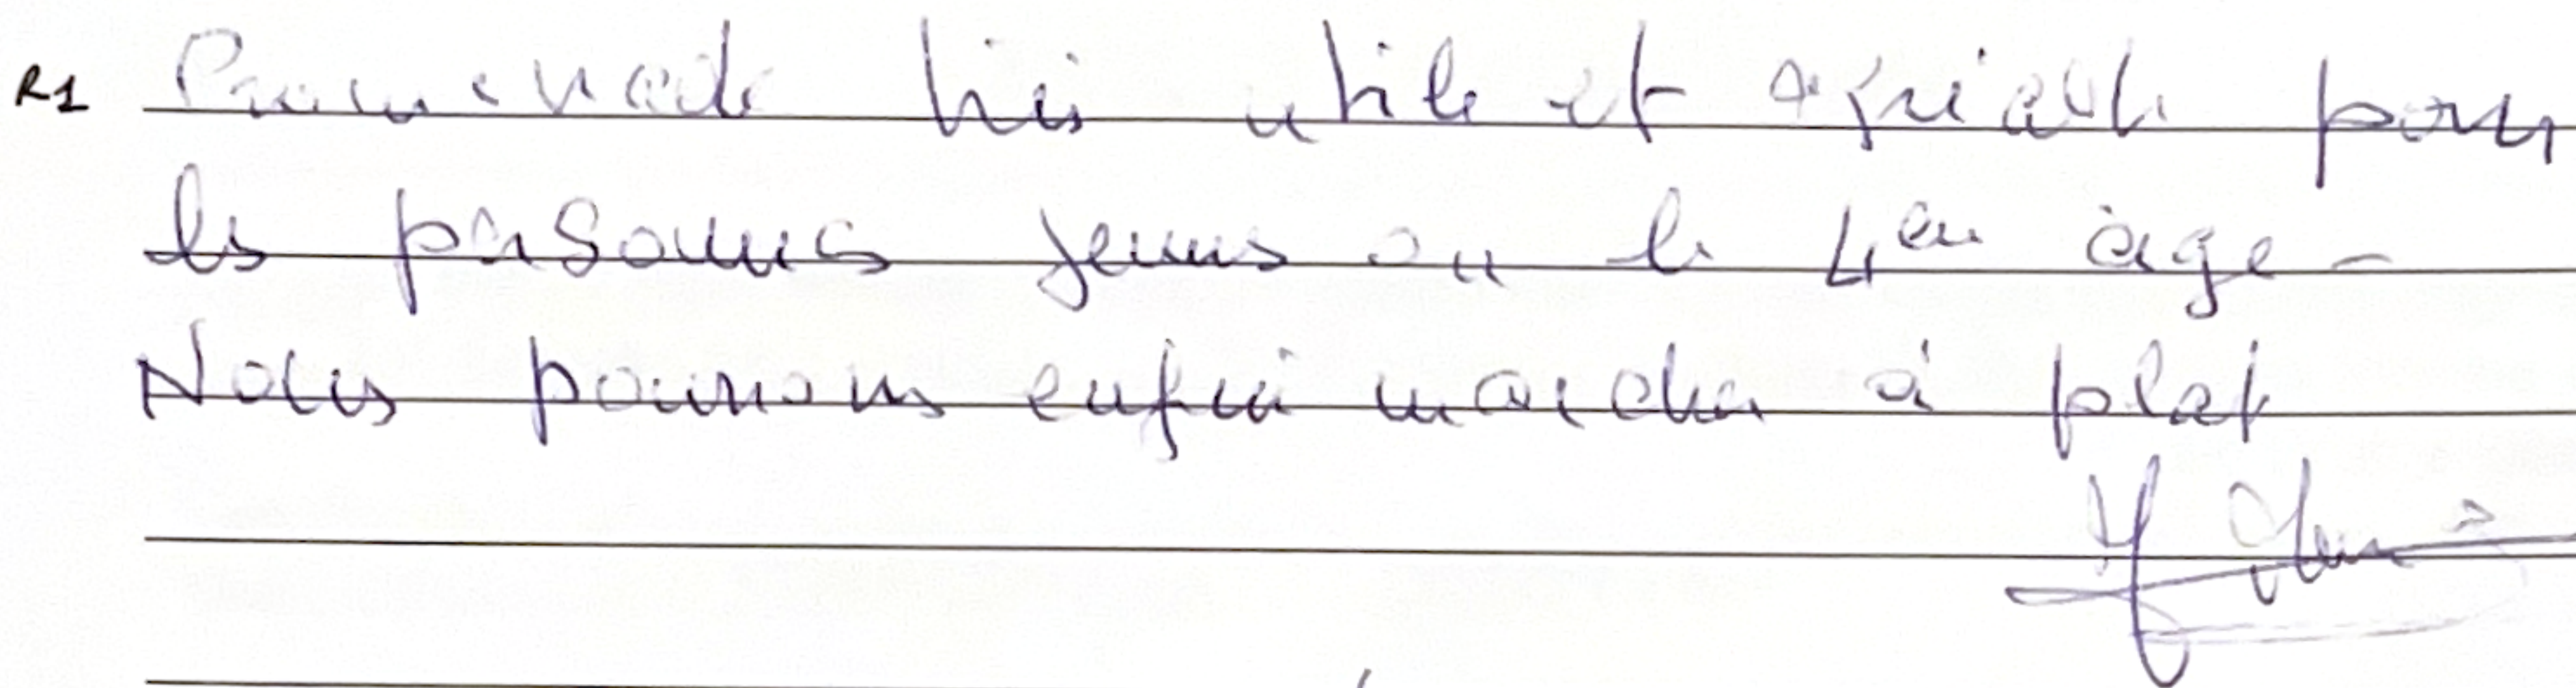 R1 Promenade très utile et agréable pour
les personnes jeunes ou le 4em age -
Nous pourrons enfin marcher à plat